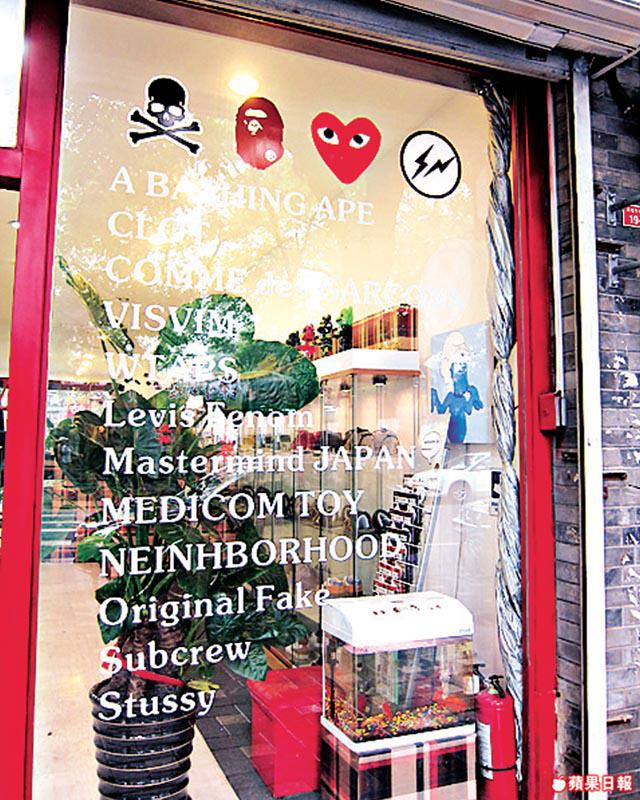 A BATHING APE
CLOT
COMME des GARCONS
VISVIM
WTAPS
Levis Fenom
Mastermind JAPAN
MEDICOM TOY
NEINHBORHOOD
Original Fake
Subcrew
Stussy
19
蘋果日報